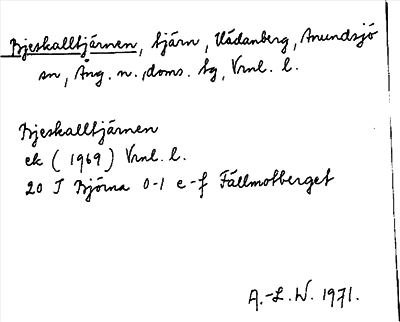 Bjeskalltjärnen, tjärn, Uddanberg, Anundsjö
sn, Ång. n., doms. tg, Vrnl. l.
Bjeskalltjärnen
ek (1969) Vrnl. l.
20 J Björna 0-1 e-f Fällmotberget
A.-L. W. 1971.